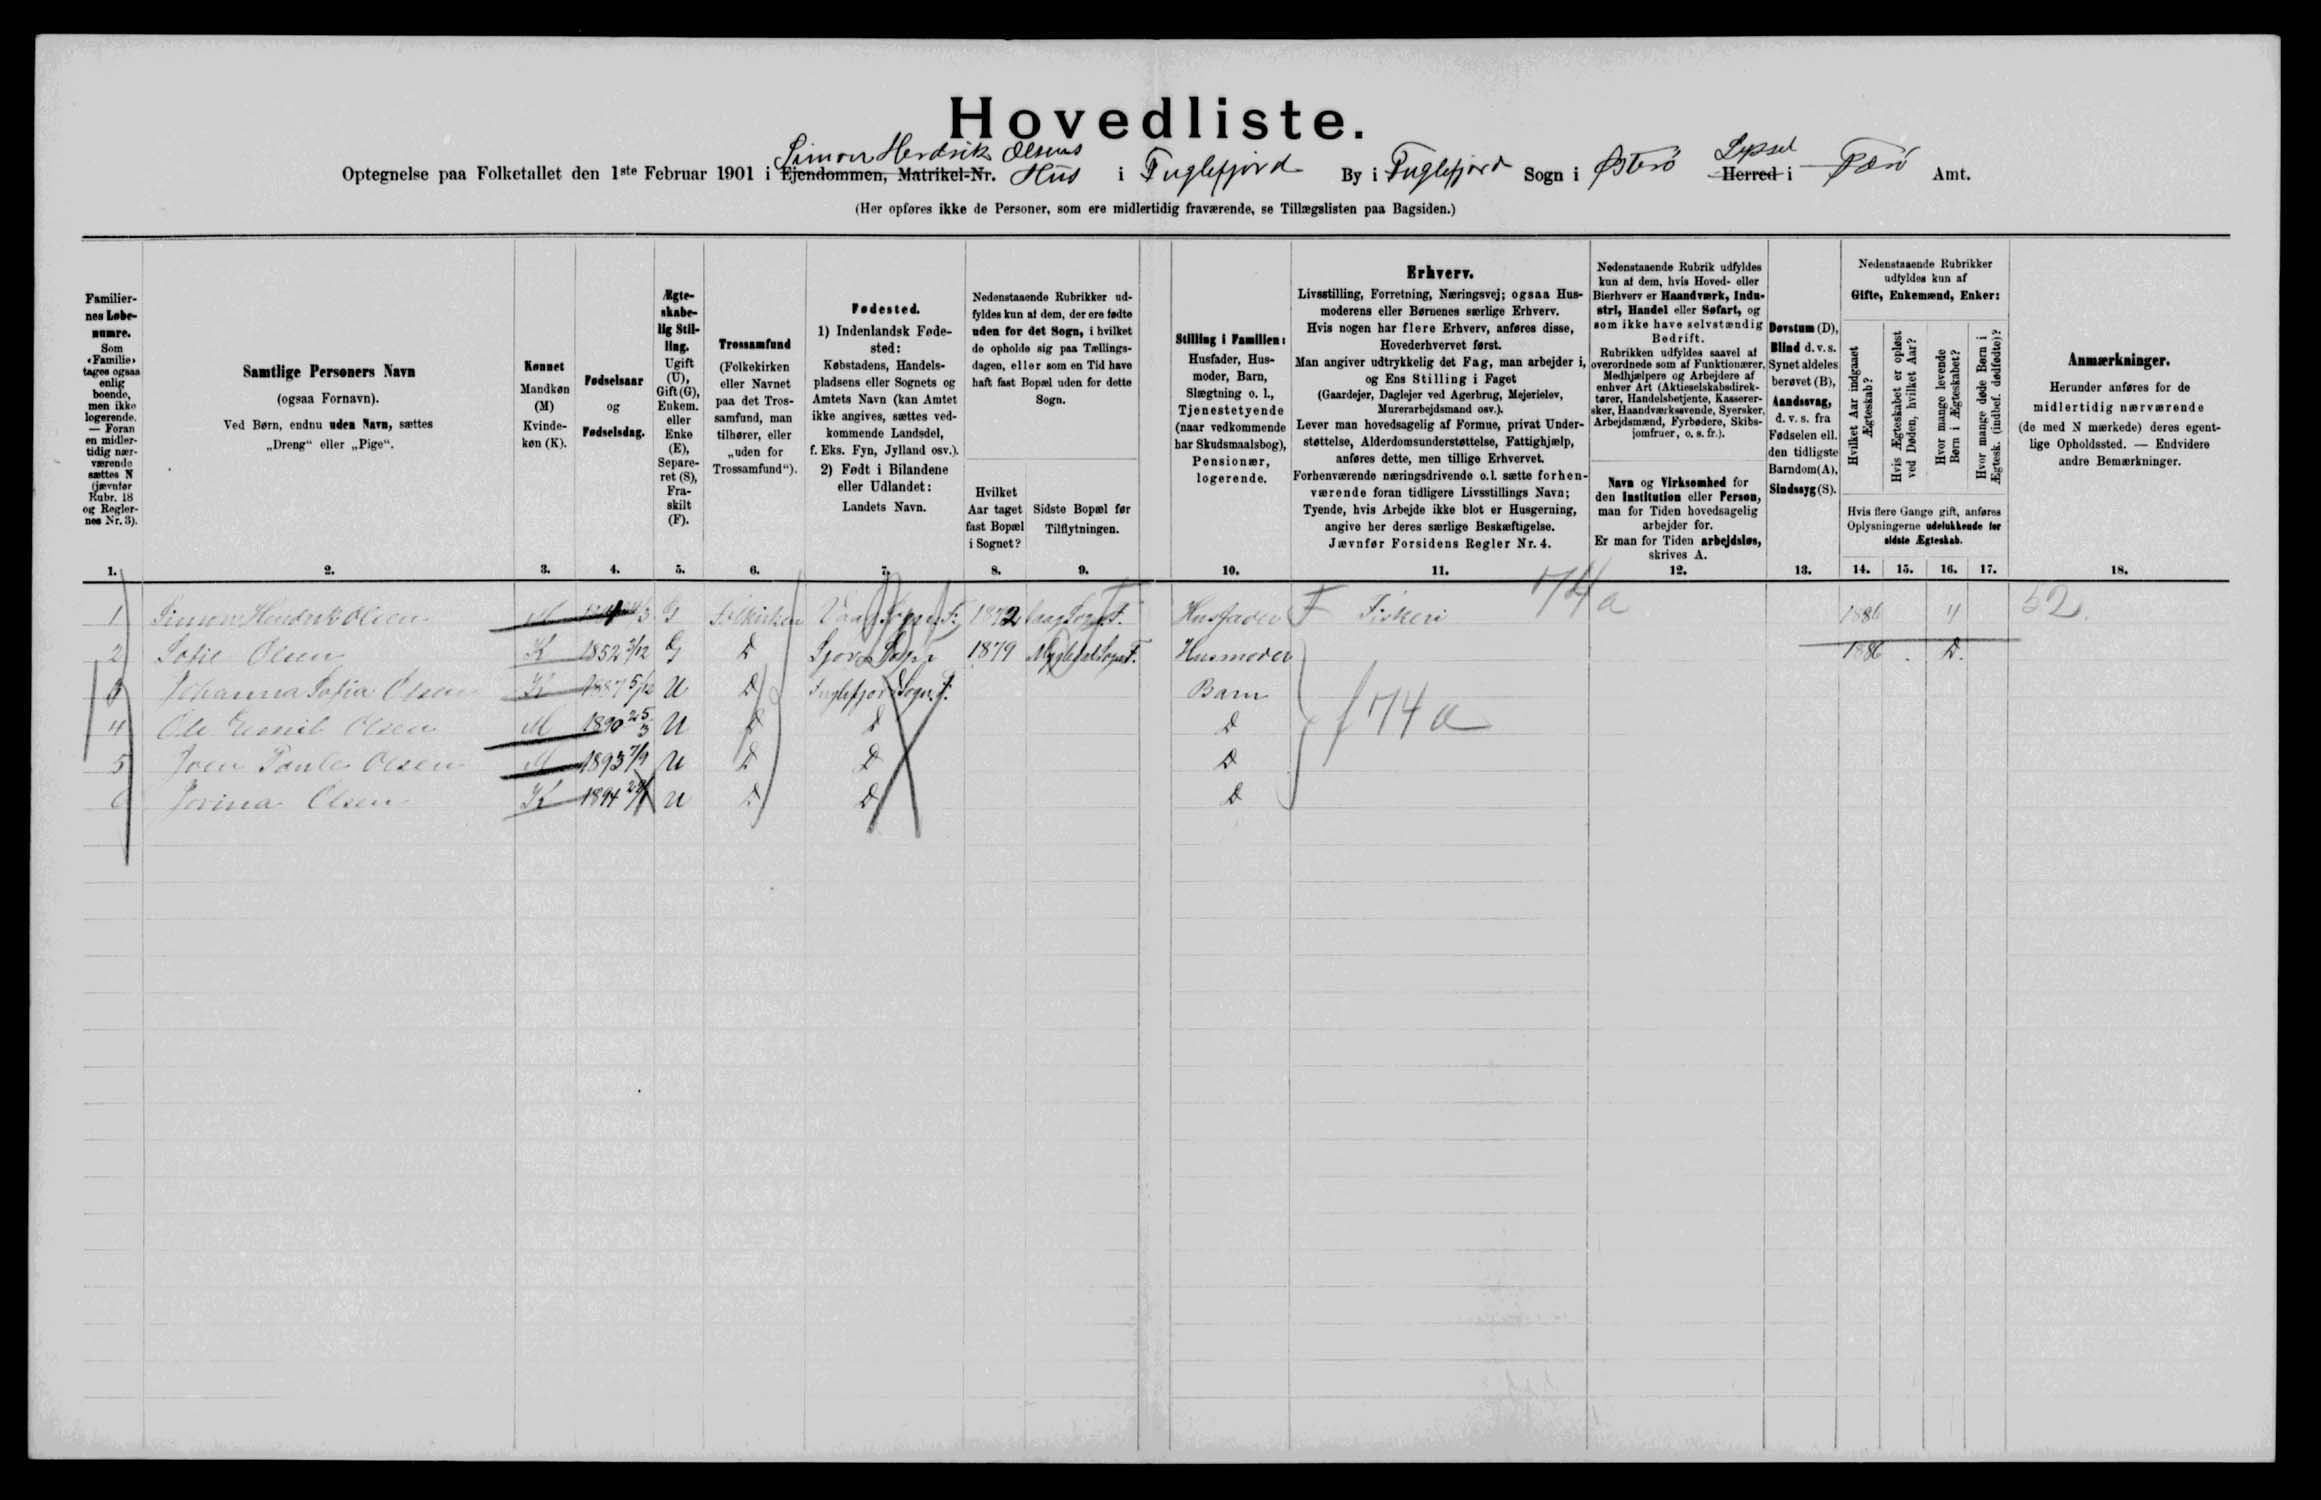 Hovedliste.
Simon Hendrik Olsens
Optegnelse paa Folketallet den 1ste Februar 1901 i Ejendommen, Matrikel-Nr. Hus i Fuglefjord By i Fuglefjord Sogn i Østerø Syssel Herred i Færø Amt.
(Her opføres ikke de Personer, som ere midlertidig fraværende, se Tillægslisten paa Bagsiden.)
Familiernes Løbenumre.
Som «Familie» tages ogsaa enlig boende, men ikke logerende. — Foran en midlertidig nærværende sættes N (jævnfør Rubr. 18 og Reglernes Nr. 3).
Samtlige Personers Navn
(ogsaa Fornavn).
Ved Børn, endnu uden Navn, sættes
„Dreng“ eller „Pige“.
Kønnet
Mandkøn (M)
Kvindekøn (K).
Fødselsaar
og
Fødselsdag.
Ægteskabelig Stilling.
Ugift (U), Gift (G), Enkem. eller Enke (E), Separeret (S), Fraskilt (F).
Trossamfund
(Folkekirken eller Navnet paa det Trossamfund, man tilhører, eller „uden for Trossamfund“).
Fødested.
1) Indenlandsk Fødested:
Købstadens, Handelspladsens eller Sognets og Amtets Navn (kan Amtet ikke angives, sættes vedkommende Landsdel, f. Eks. Fyn, Jylland osv.).
2) Født i Bilandene eller Udlandet:
Landets Navn.
Nedenstaaende Rubrikker udfyldes kun af dem, der ere fødte uden for det Sogn, i hvilket de opholde sig paa Tællingsdagen, eller som en Tid have haft fast Bopæl uden for dette Sogn.
Hvilket Aar taget fast Bopæl i Sognet?
Sidste Bopæl før Tilflytningen.
Stilling i Familien:
Husfader, Husmoder, Barn, Slægtning o. l., Tjenestetyende (naar vedkommende har Skudsmaalsbog), Pensionær, logerende.
Erhverv.
Livsstilling, Forretning, Næringsvej; ogsaa Husmoderens eller Børnenes særlige Erhverv.
Hvis nogen har flere Erhverv, anføres disse, Hovederhvervet først.
Man angiver udtrykkelig det Fag, man arbejder i, og Ens Stilling i Faget
(Gaardejer, Daglejer ved Agerbrug, Mejerielev, Murerarbejdsmand osv.).
Lever man hovedsagelig af Formue, privat Understøttelse, Alderdomsunderstøttelse, Fattighjælp, anføres dette, men tillige Erhvervet.
Forhenværende næringsdrivende o. l. sætte forhenværende foran tidligere Livsstillings Navn;
Tyende, hvis Arbejde ikke blot er Husgerning, angive her deres særlige Beskæftigelse.
Jævnfør Forsidens Regler Nr. 4.
Nedenstaaende Rubrik udfyldes kun af dem, hvis Hoved- eller Bierhverv er Haandværk, Industri, Handel eller Søfart, og som ikke have selvstændig Bedrift.
Rubrikken udfyldes saavel af overordnede som af Funktionærer, Medhjælpere og Arbejdere af enhver Art (Aktieselskabsdirektører, Handelsbetjente, Kasserersker, Haandværkssvende, Syersker, Arbejdsmænd, Fyrbødere, Skibsjomfruer, o. s. fr.).
Navn og Virksomhed for den Institution eller Person, man for Tiden hovedsagelig arbejder for.
Er man for Tiden arbejdsløs, skrives A.
Døvstum (D), Blind d. v. s. Synet aldeles berøvet (B), Aandssvag, d. v. s. fra Fødselen ell. den tidligste Barndom (A), Sindssyg (S).
Nedenstaaende Rubrikker udfyldes kun af
Gifte, Enkemænd, Enker:
Hvilket Aar indgaaet Ægteskab?
Hvis Ægteskabet er opløst ved Døden, hvilket Aar?
Hvor mange levende Børn i Ægteskabet?
Hvor mange døde Børn i Ægtesk. (indbef. dødfødte)?
Hvis flere Gange gift, anføres Oplysningerne udelukkende for sidste Ægteskab.
Anmærkninger.
Herunder anføres for de midlertidig nærværende (de med N mærkede) deres egentlige Opholdssted. — Endvidere andre Bemærkninger.
1. 2. 3. 4. 5. 6. 7. 8. 9. 10. 11. 12. 13. 14. 15. 16. 17. 18.
174 a
1 Simon Hendrik Olsen M G Folkekirken Vaag Sogn F. Husfader F Fiskeri 1886 4 52.
2 Sofie Olsen K 1852 G D Sogn 1879 Husmoder 1886 D.
3 Johanna Sofia Olsen K 1887 5/12 U D Fuglefjord Sogn F. Barn
4 Ole Emil Olsen M 1890 25/3 U D D D
174 a
5 Joen Paule Olsen M 1893 7/9 U D D D
6 Jovina Olsen K 1894 U D D D